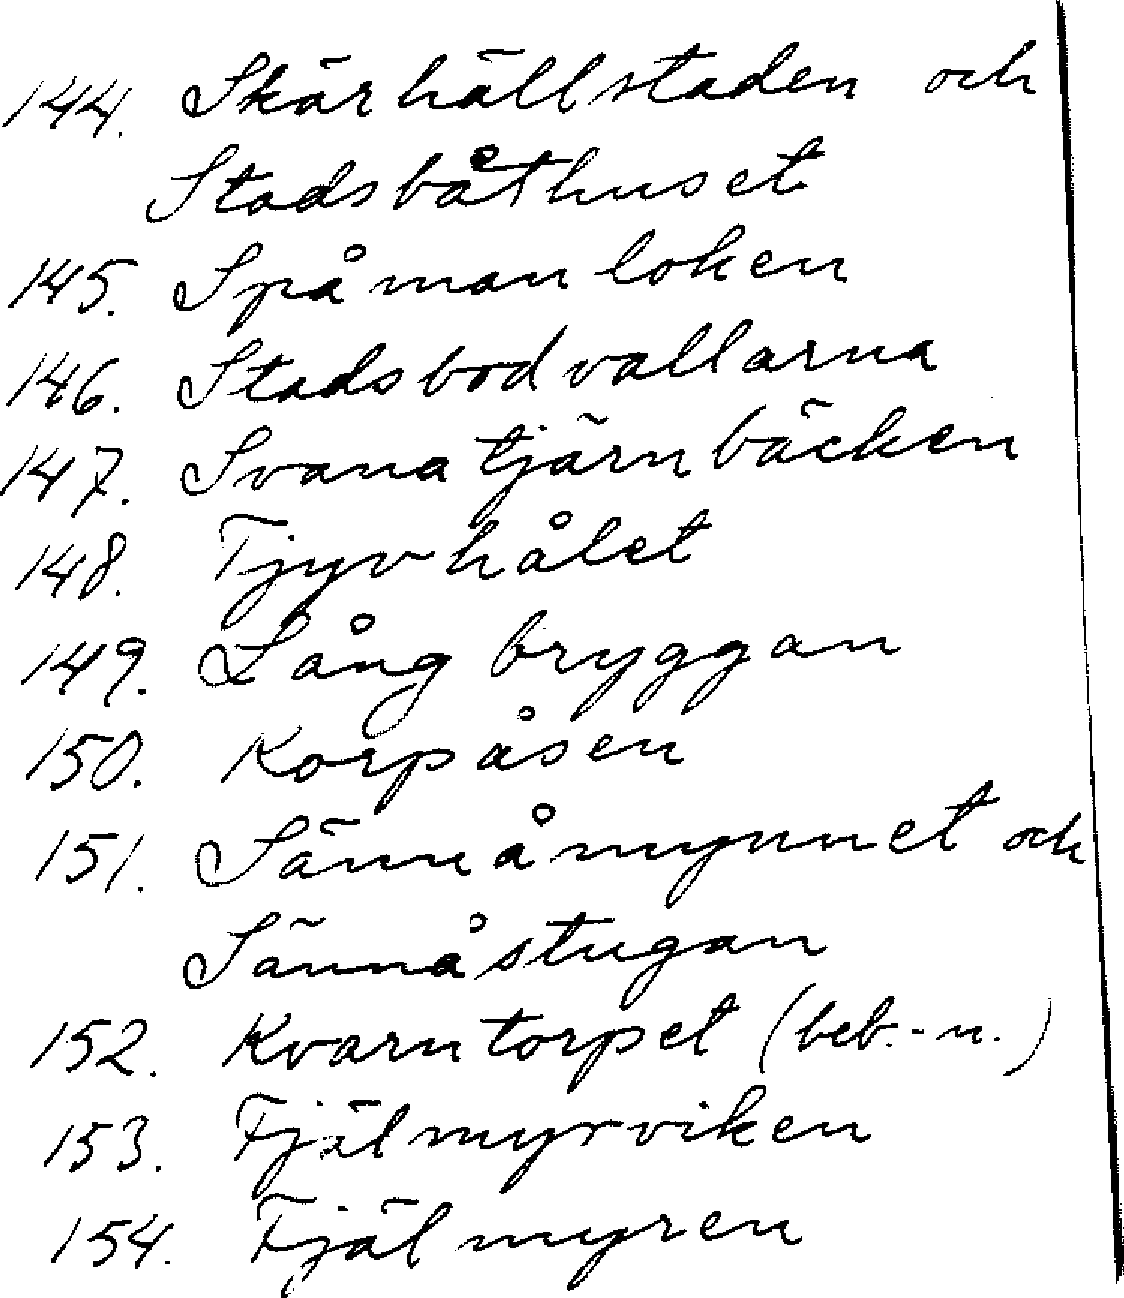 144. Skärhällstaden och
Stadsbåthuset
145. Spåmanloken
146. Stadsbodvallarna
147. Svanatjärnbäcken
148. Tjyvhålet
149. Långbryggan
150. Korpåsen
151. Sännåmynnet och
Sännåstugan
152. Kvarntorpet (beb.-n.)
153. Fjälmyrviken
154. Fjälmyren